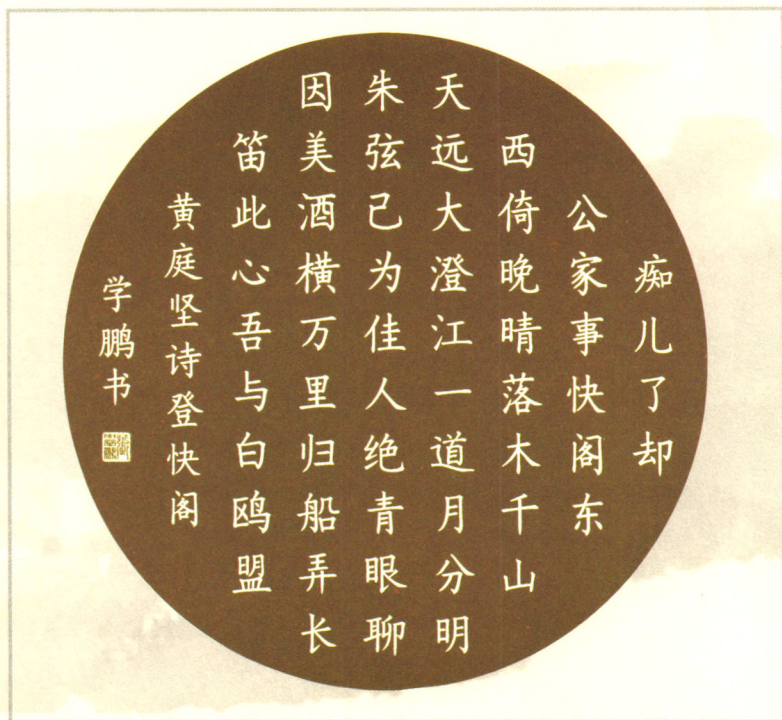 痴儿了却
公家事快阁东
西倚晚晴落木千山
天远大澄江一道月分明
朱弦已为佳人绝青眼聊
因美酒横万里归船弄长
笛此心吾与白鸥盟
黄庭坚诗登快阁
学鹏书